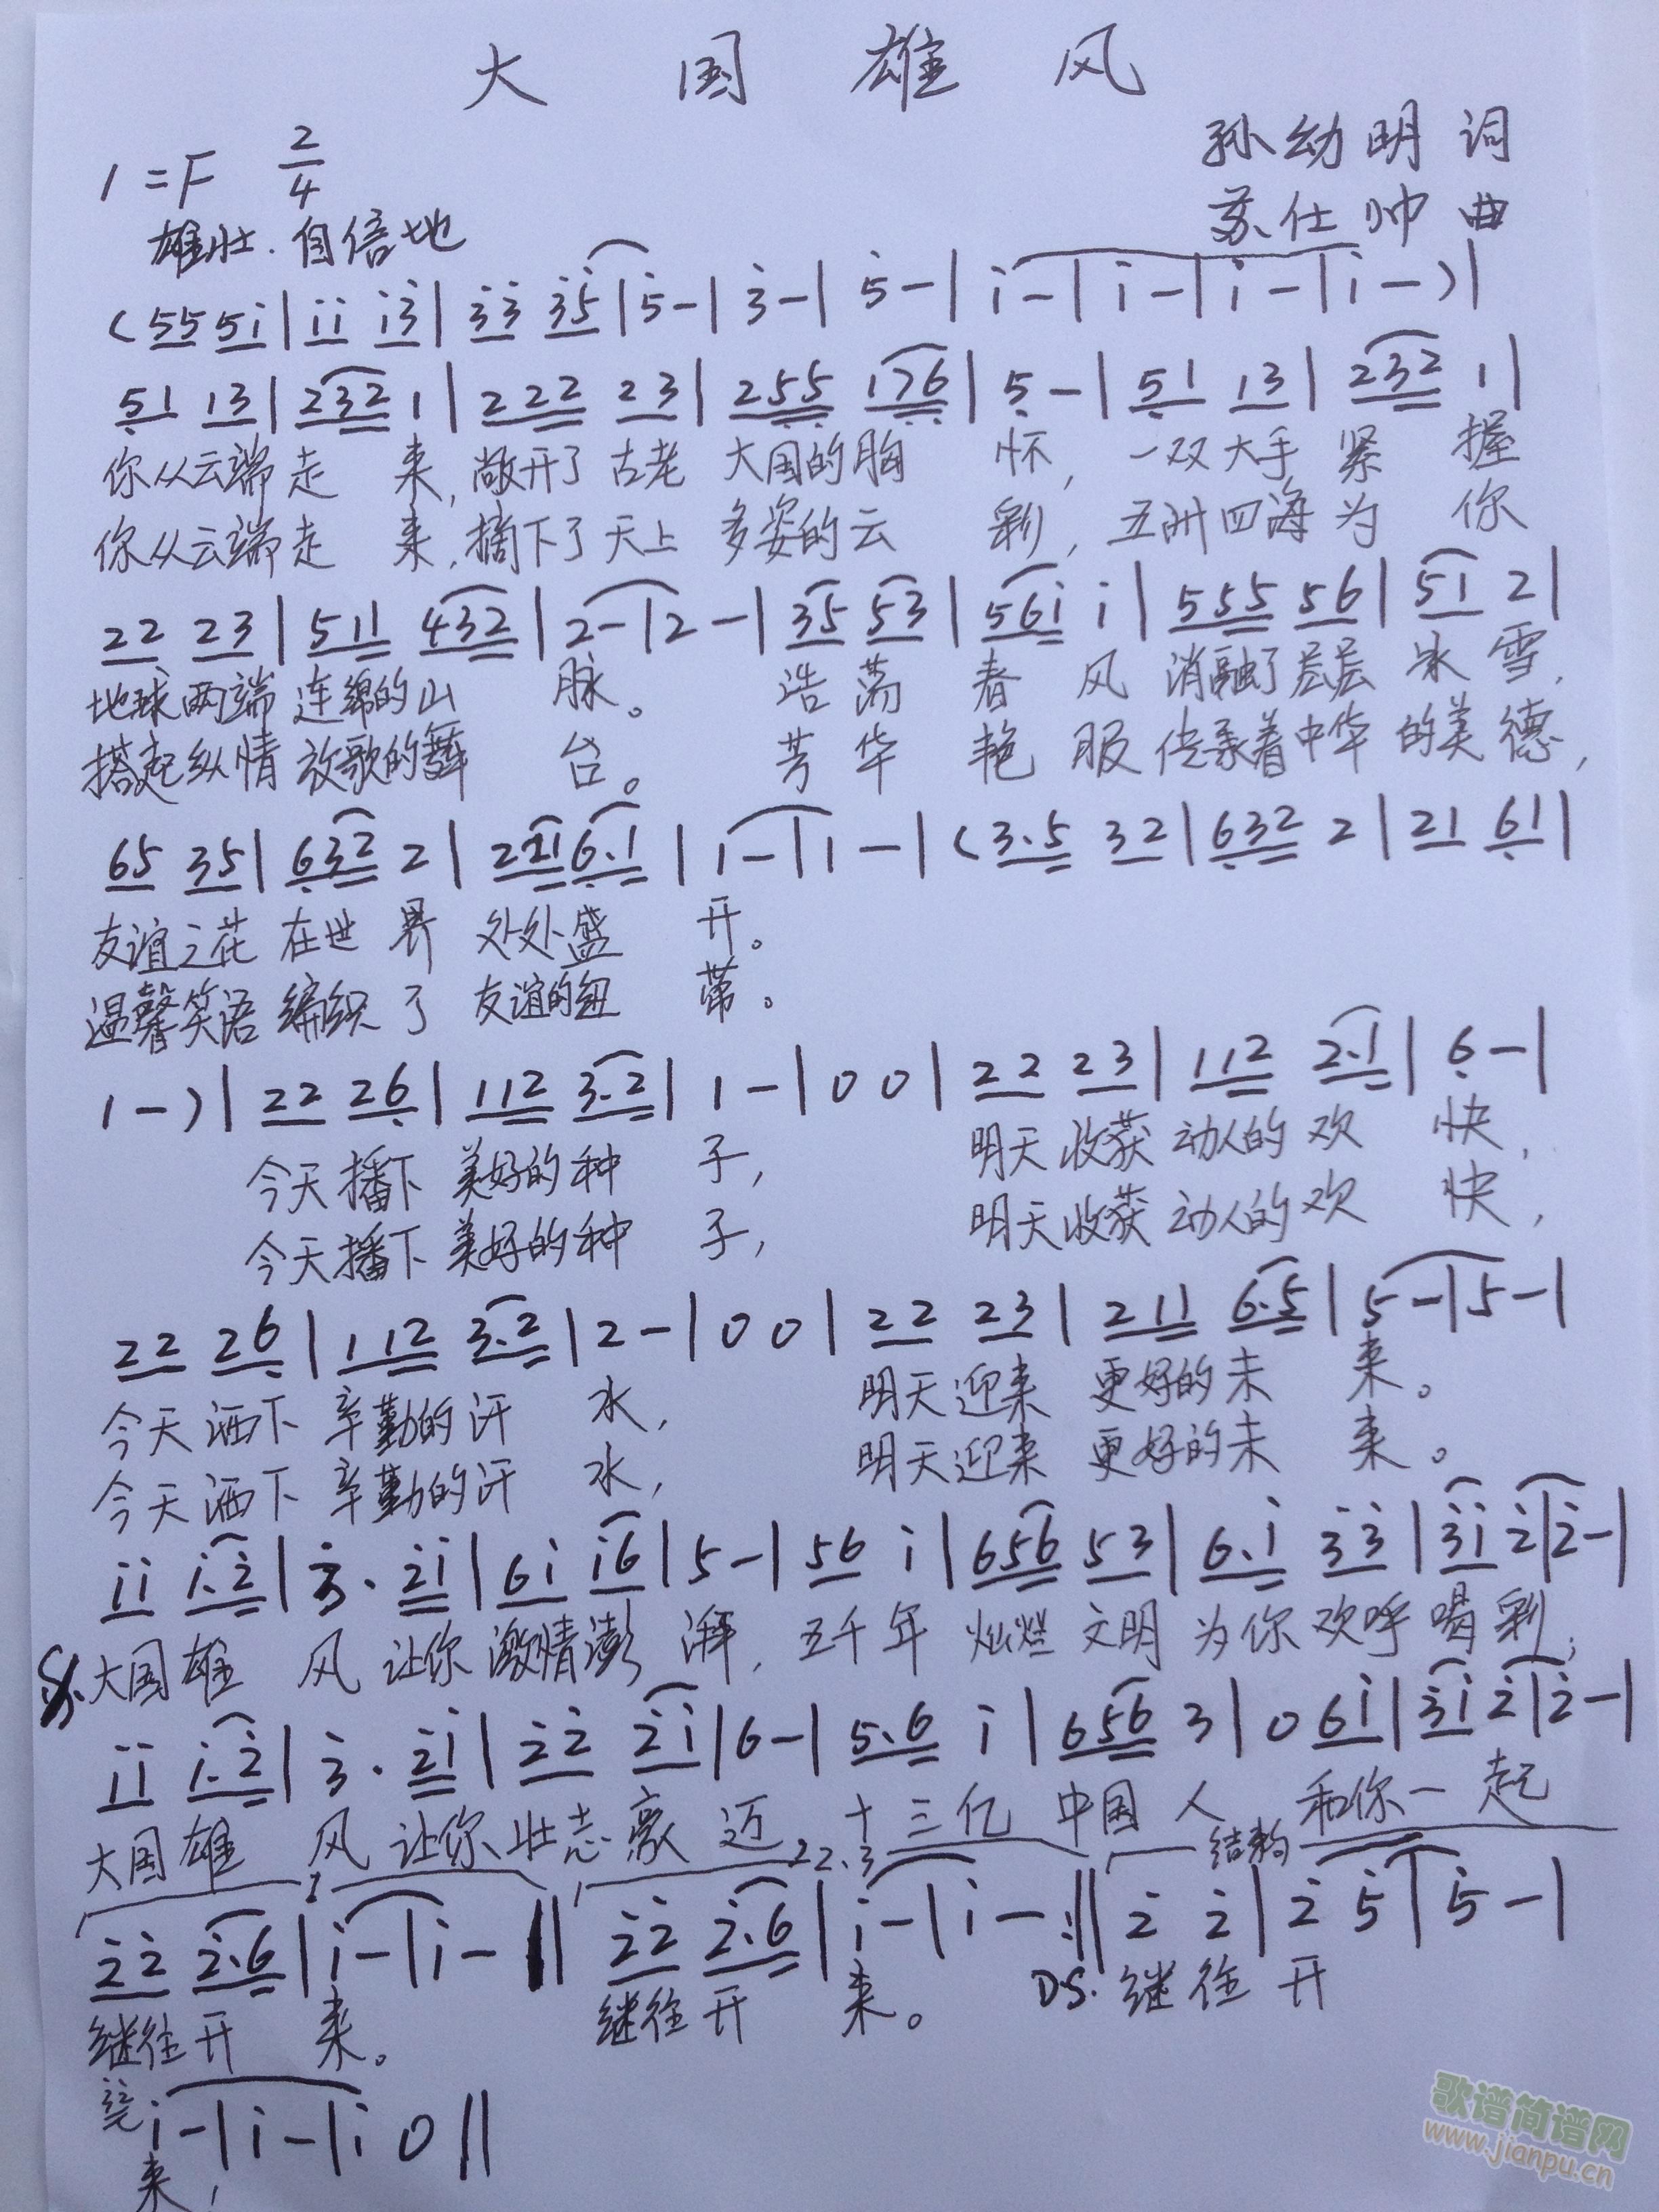 大国雄风
1=F 2/4
孙幼明 词
雄壮.自信地
苏仕帅 曲
(55 5i|ii i3|33 35|5-|3-|5-|i-|i-|i-|i-)|
51 13|232 1|222 23|255 176|5-|51 13|232 1|
你从云端走 来,敞开了古老 大国的胸 怀,一双大手 紧 握
你从云端走 来,摘下了天上 多姿的云 彩,五洲四海为 你
22 23|511 432|2-|2-|35 53|56i i|555 56|51 2|
地球两端 连绵的山 脉。 浩荡 春 风 消融了层层 冰雪,
搭起纵情 放歌的舞 台。 芳华 艳 服 传承着中华 的美德,
65 35|632 2|211 6.1|1-|1-|(3.5 32|632 2|21 61|
友谊之花 在世 界 处处盛 开。
温馨笑语 编织 了 友谊的纽 带。
1-)|22 26|112 3.2|1-|00|22 23|112 2.1|6-|
今天播下 美好的种 子, 明天收获 动人的欢 快,
今天播下 美好的种 子, 明天收获 动人的欢 快,
22 26|112 3.2|2-|00|22 23|211 6.5|5-|5-|
今天洒下 辛勤的汗 水, 明天迎来 更好的未 来。
今天洒下 辛勤的汗 水, 明天迎来 更好的未 来。
ii i.2|3. 2i|6i i6|5-|56 i|656 53|6.i 33|3i 2|2-|
大国雄 风 让你 激情澎 湃,五千年 灿烂 文明 为你 欢呼 喝彩,
ii i.2|3. 2i|22 2i|6-|5.6 i|656 3|0 6i|3i 2|2-|
大国雄 风 让你 壮志豪 迈,十三亿 中国 人 和你一 起
1 2.3 结构
22 2.6|i-|i-‖ 22 2.6|i-|i-:‖ 2 2|2 5|5-|
继往开 来。 继往开 来。 DS. 继往 开
i-|i-|i 0‖
来,
歌谱简谱网
www.jianpu.cn